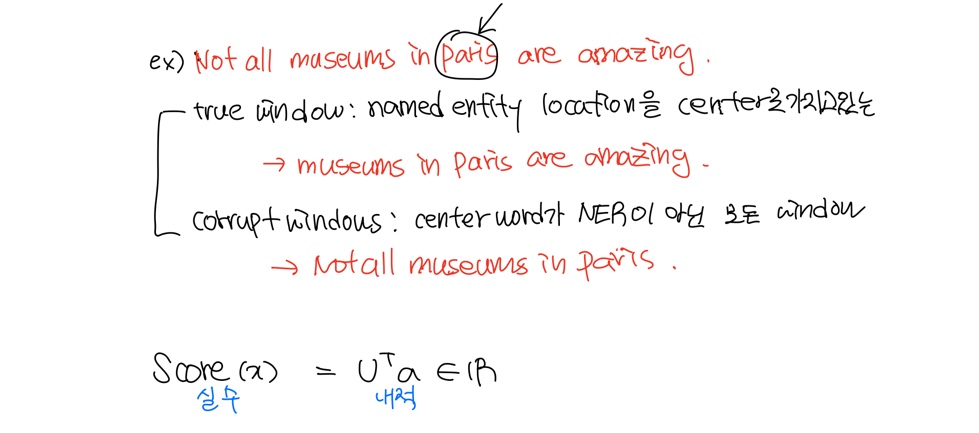 ex) Not all museums in Paris are amazing.
true window : named entity location을 center로가지고있는
→ museums in Paris are amazing.
corrupt windows : center word가 NER이 아닌 모든 window
→ Not all museums in Paris.
Score(x) = Uᵀa ∈ ℝ
실수 내적